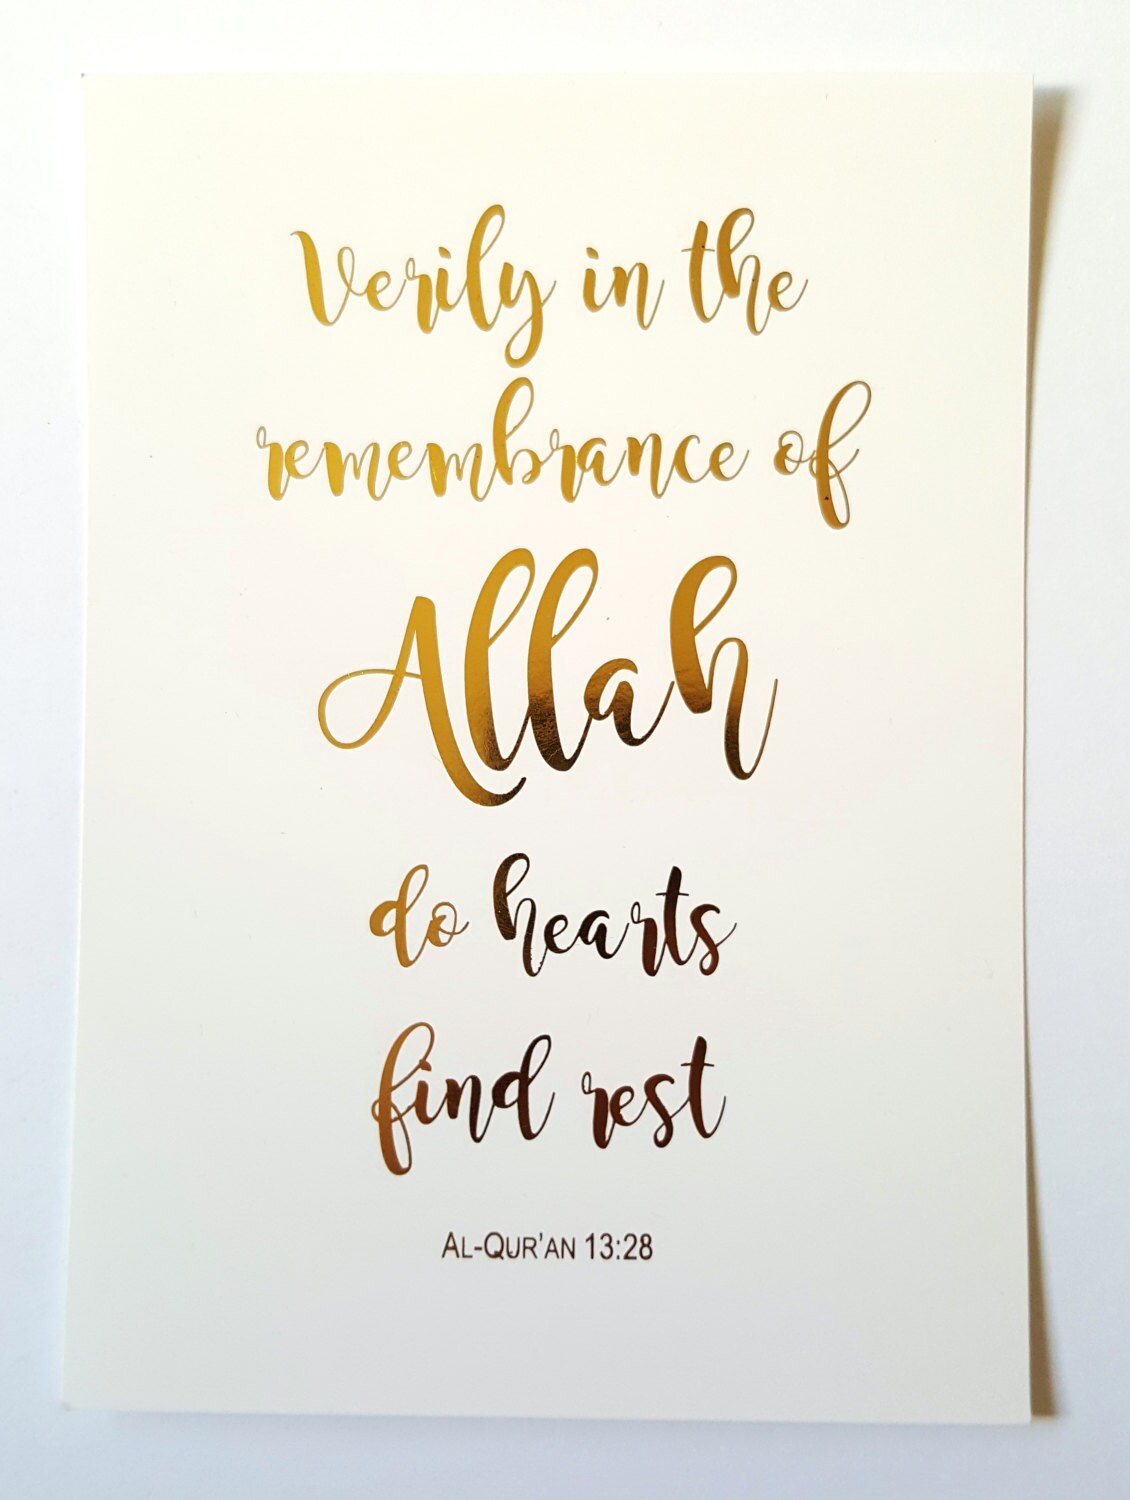 Verily in the
remembrance of
Allah
do hearts
find rest
AL-QUR'AN 13:28